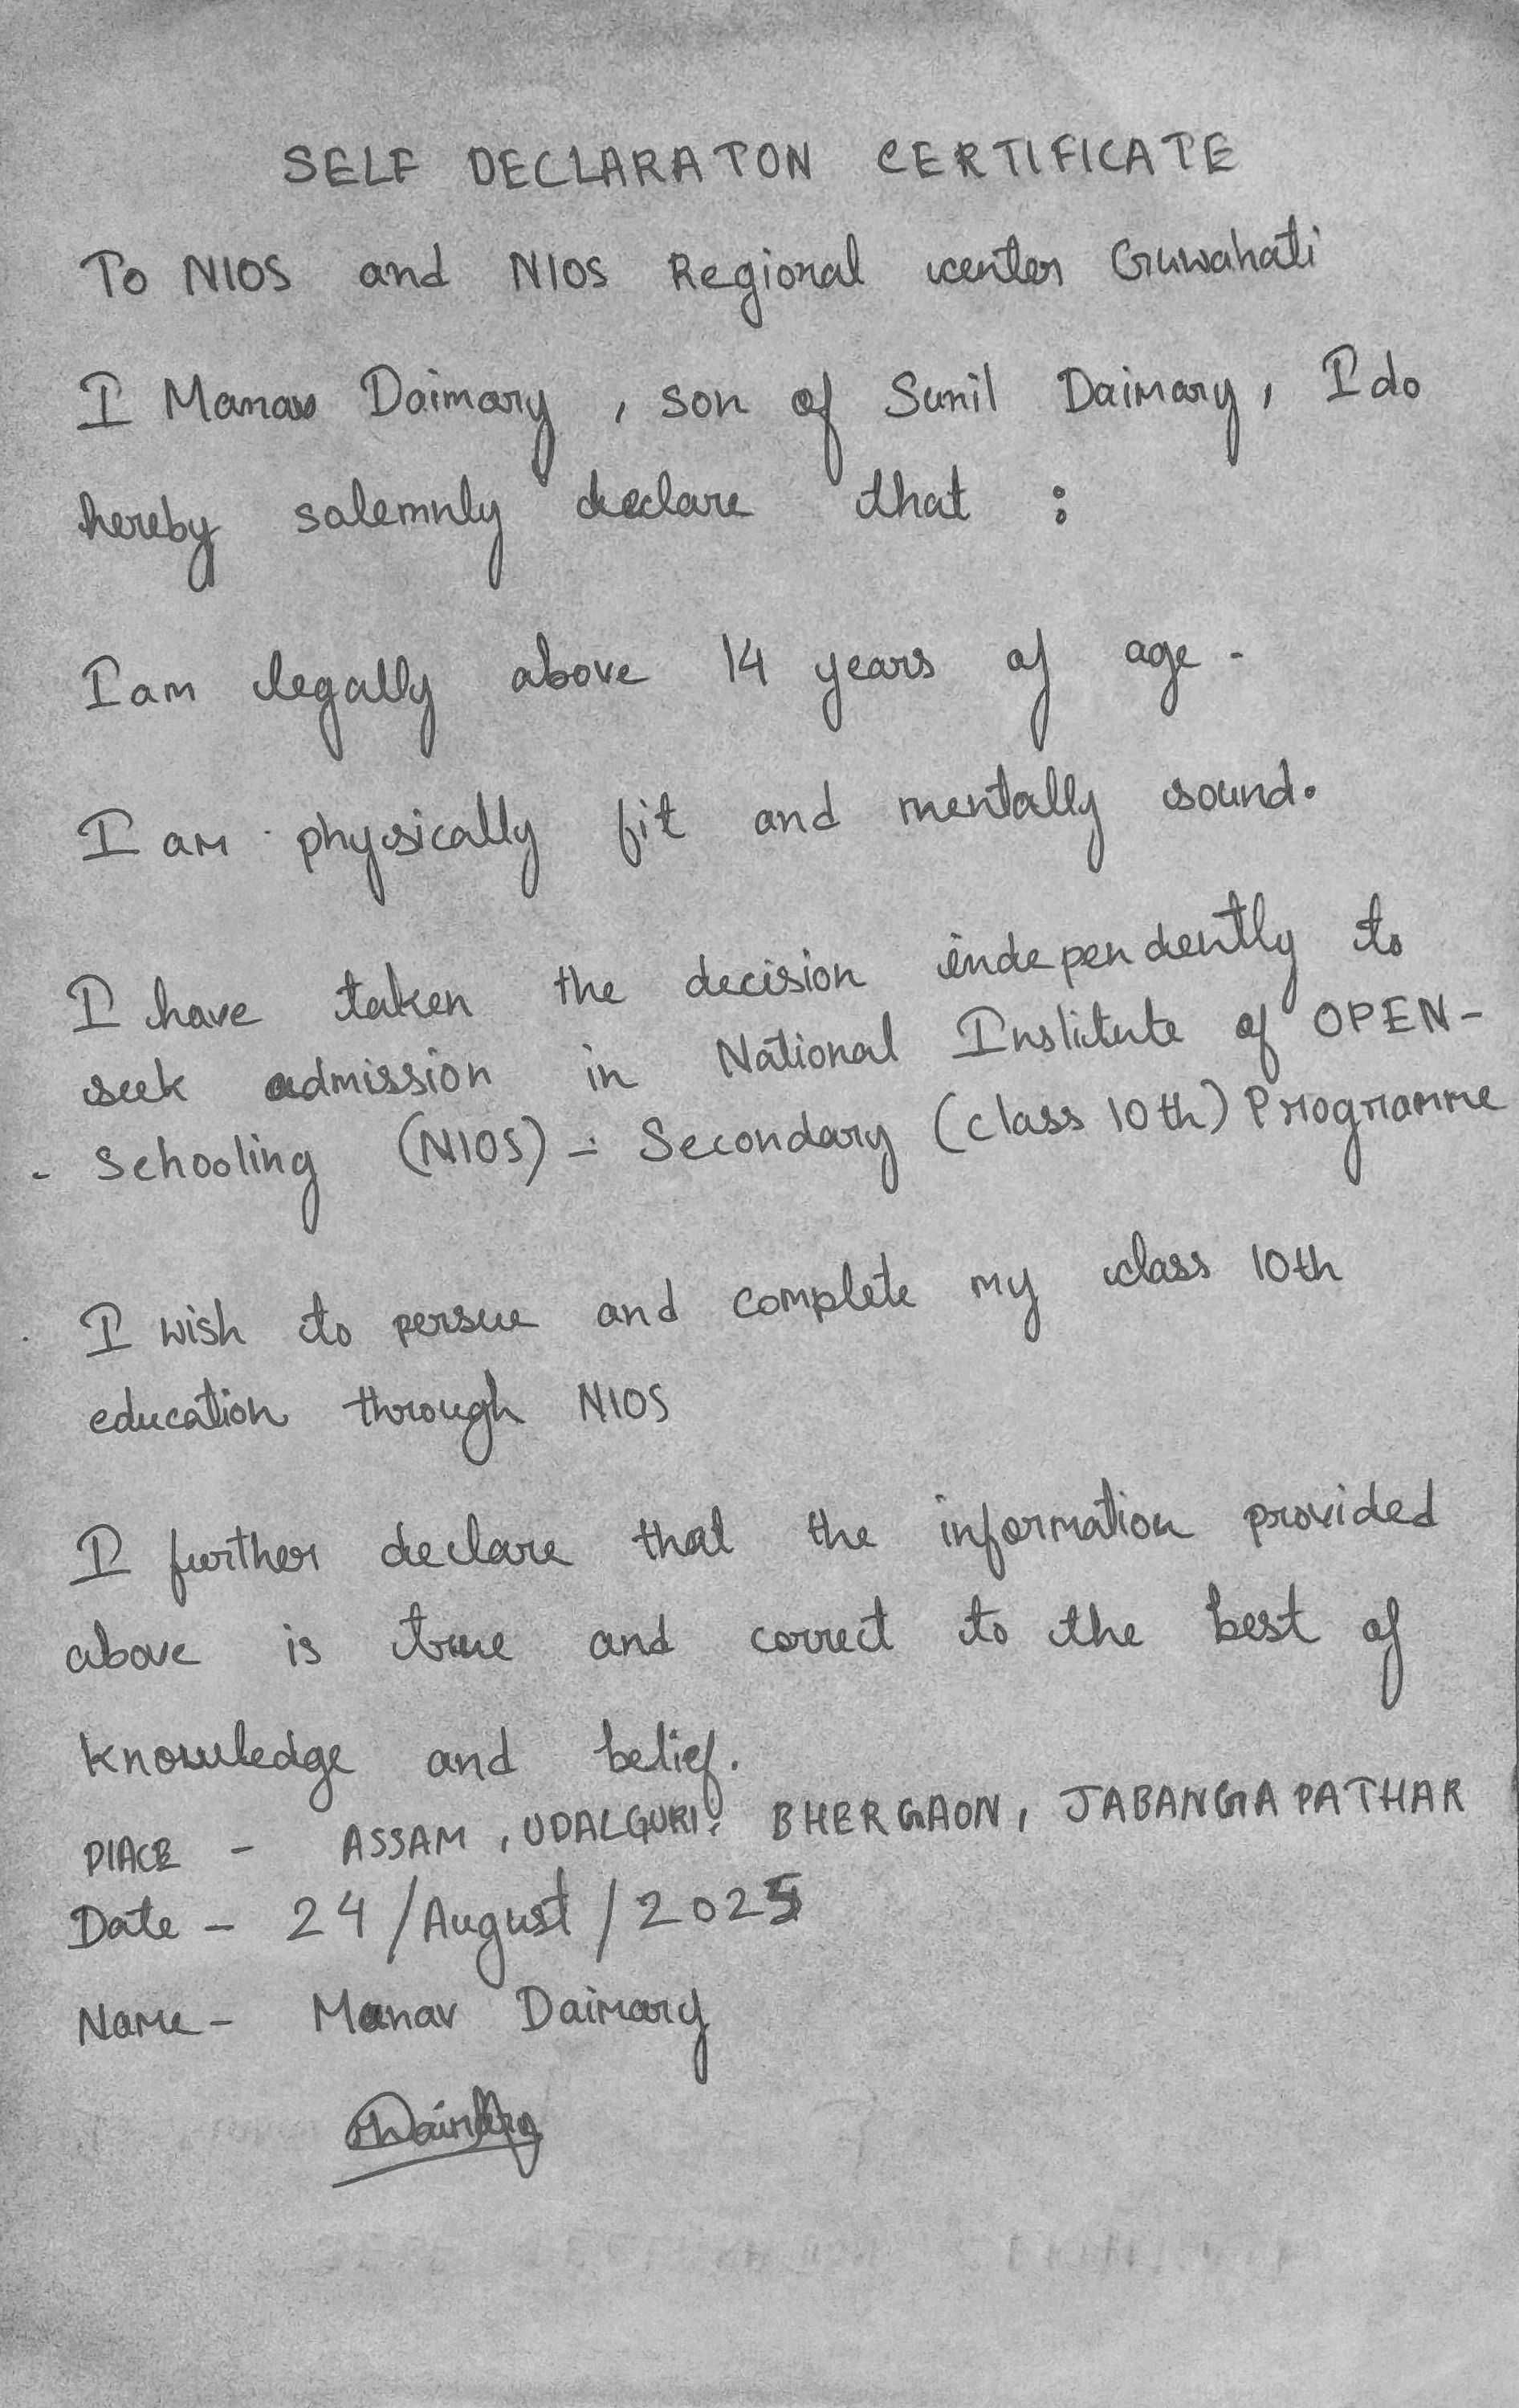 SELF DECLARATON CERTIFICATE
To NIOS and NIOS Regional center Guwahati
I Manav Daimary, son of Sunil Daimary, I do
hereby solemnly declare that :
I am legally above 14 years of age.
I am physically fit and mentally sound.
I have taken the decision independently to
seek admission in National Institute of OPEN-
- Schooling (NIOS) - Secondary (class 10th) Programme
I wish to persue and complete my class 10th
education through NIOS
I further declare that the information provided
above is true and correct to the best of
knowledge and belief.
PlACE - ASSAM, UDALGURI, BHERGAON, JABANGAPATHAR
Date - 24/August/2025
Name - Manav Daimary
MDaimary